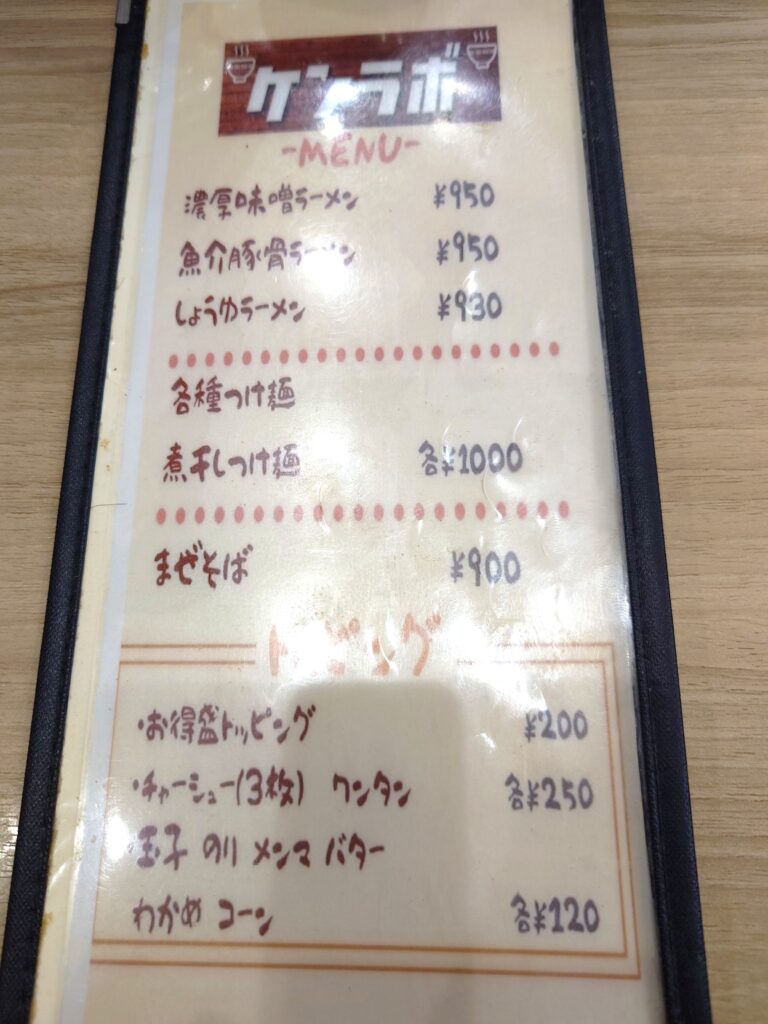 ケンラボ
-MENU-
濃厚味噌ラーメン ¥950
魚介豚骨ラーメン ¥950
しょうゆラーメン ¥930
各種つけ麺
煮干しつけ麺 各¥1000
まぜそば ¥900
トッピング
・お得盛トッピング ¥200
・チャーシュー(3枚) ワンタン 各¥250
・玉子 のり メンマ バター
わかめ コーン 各¥120